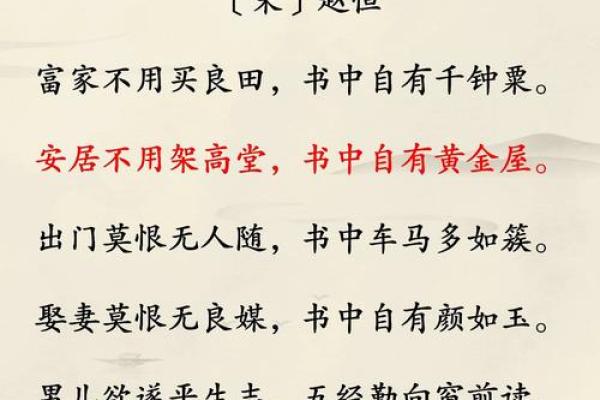 〔宋〕赵恒
富家不用买良田，书中自有千钟粟。
安居不用架高堂，书中自有黄金屋。
出门莫恨无人随，书中车马多如簇。
娶妻莫恨无良媒，书中自有颜如玉。
男儿欲遂平生志，五经勤向窗前读。